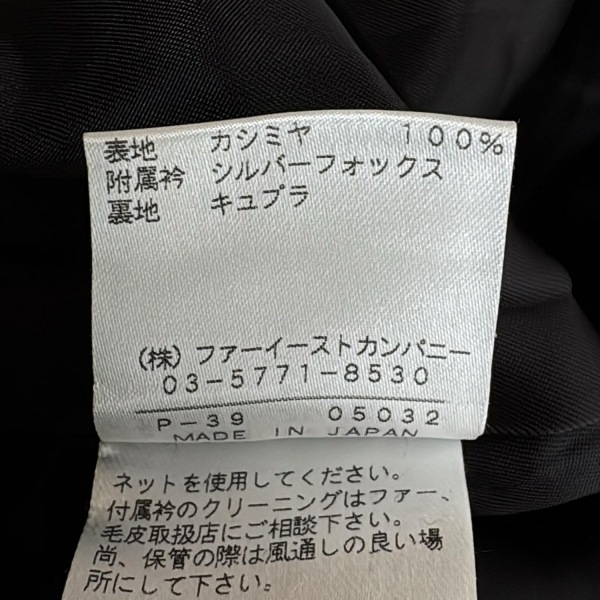 表地 カシミヤ 100%
附属衿 シルバーフォックス
裏地 キュプラ
(株) ファーイーストカンパニー
03-5771-8530
P-39 05032
MADE IN JAPAN
ネットを使用してください。
付属衿のクリーニングはファー、
毛皮取扱店にご相談下さい。
尚、保管の際は風通しの良い場
所にして下さい。